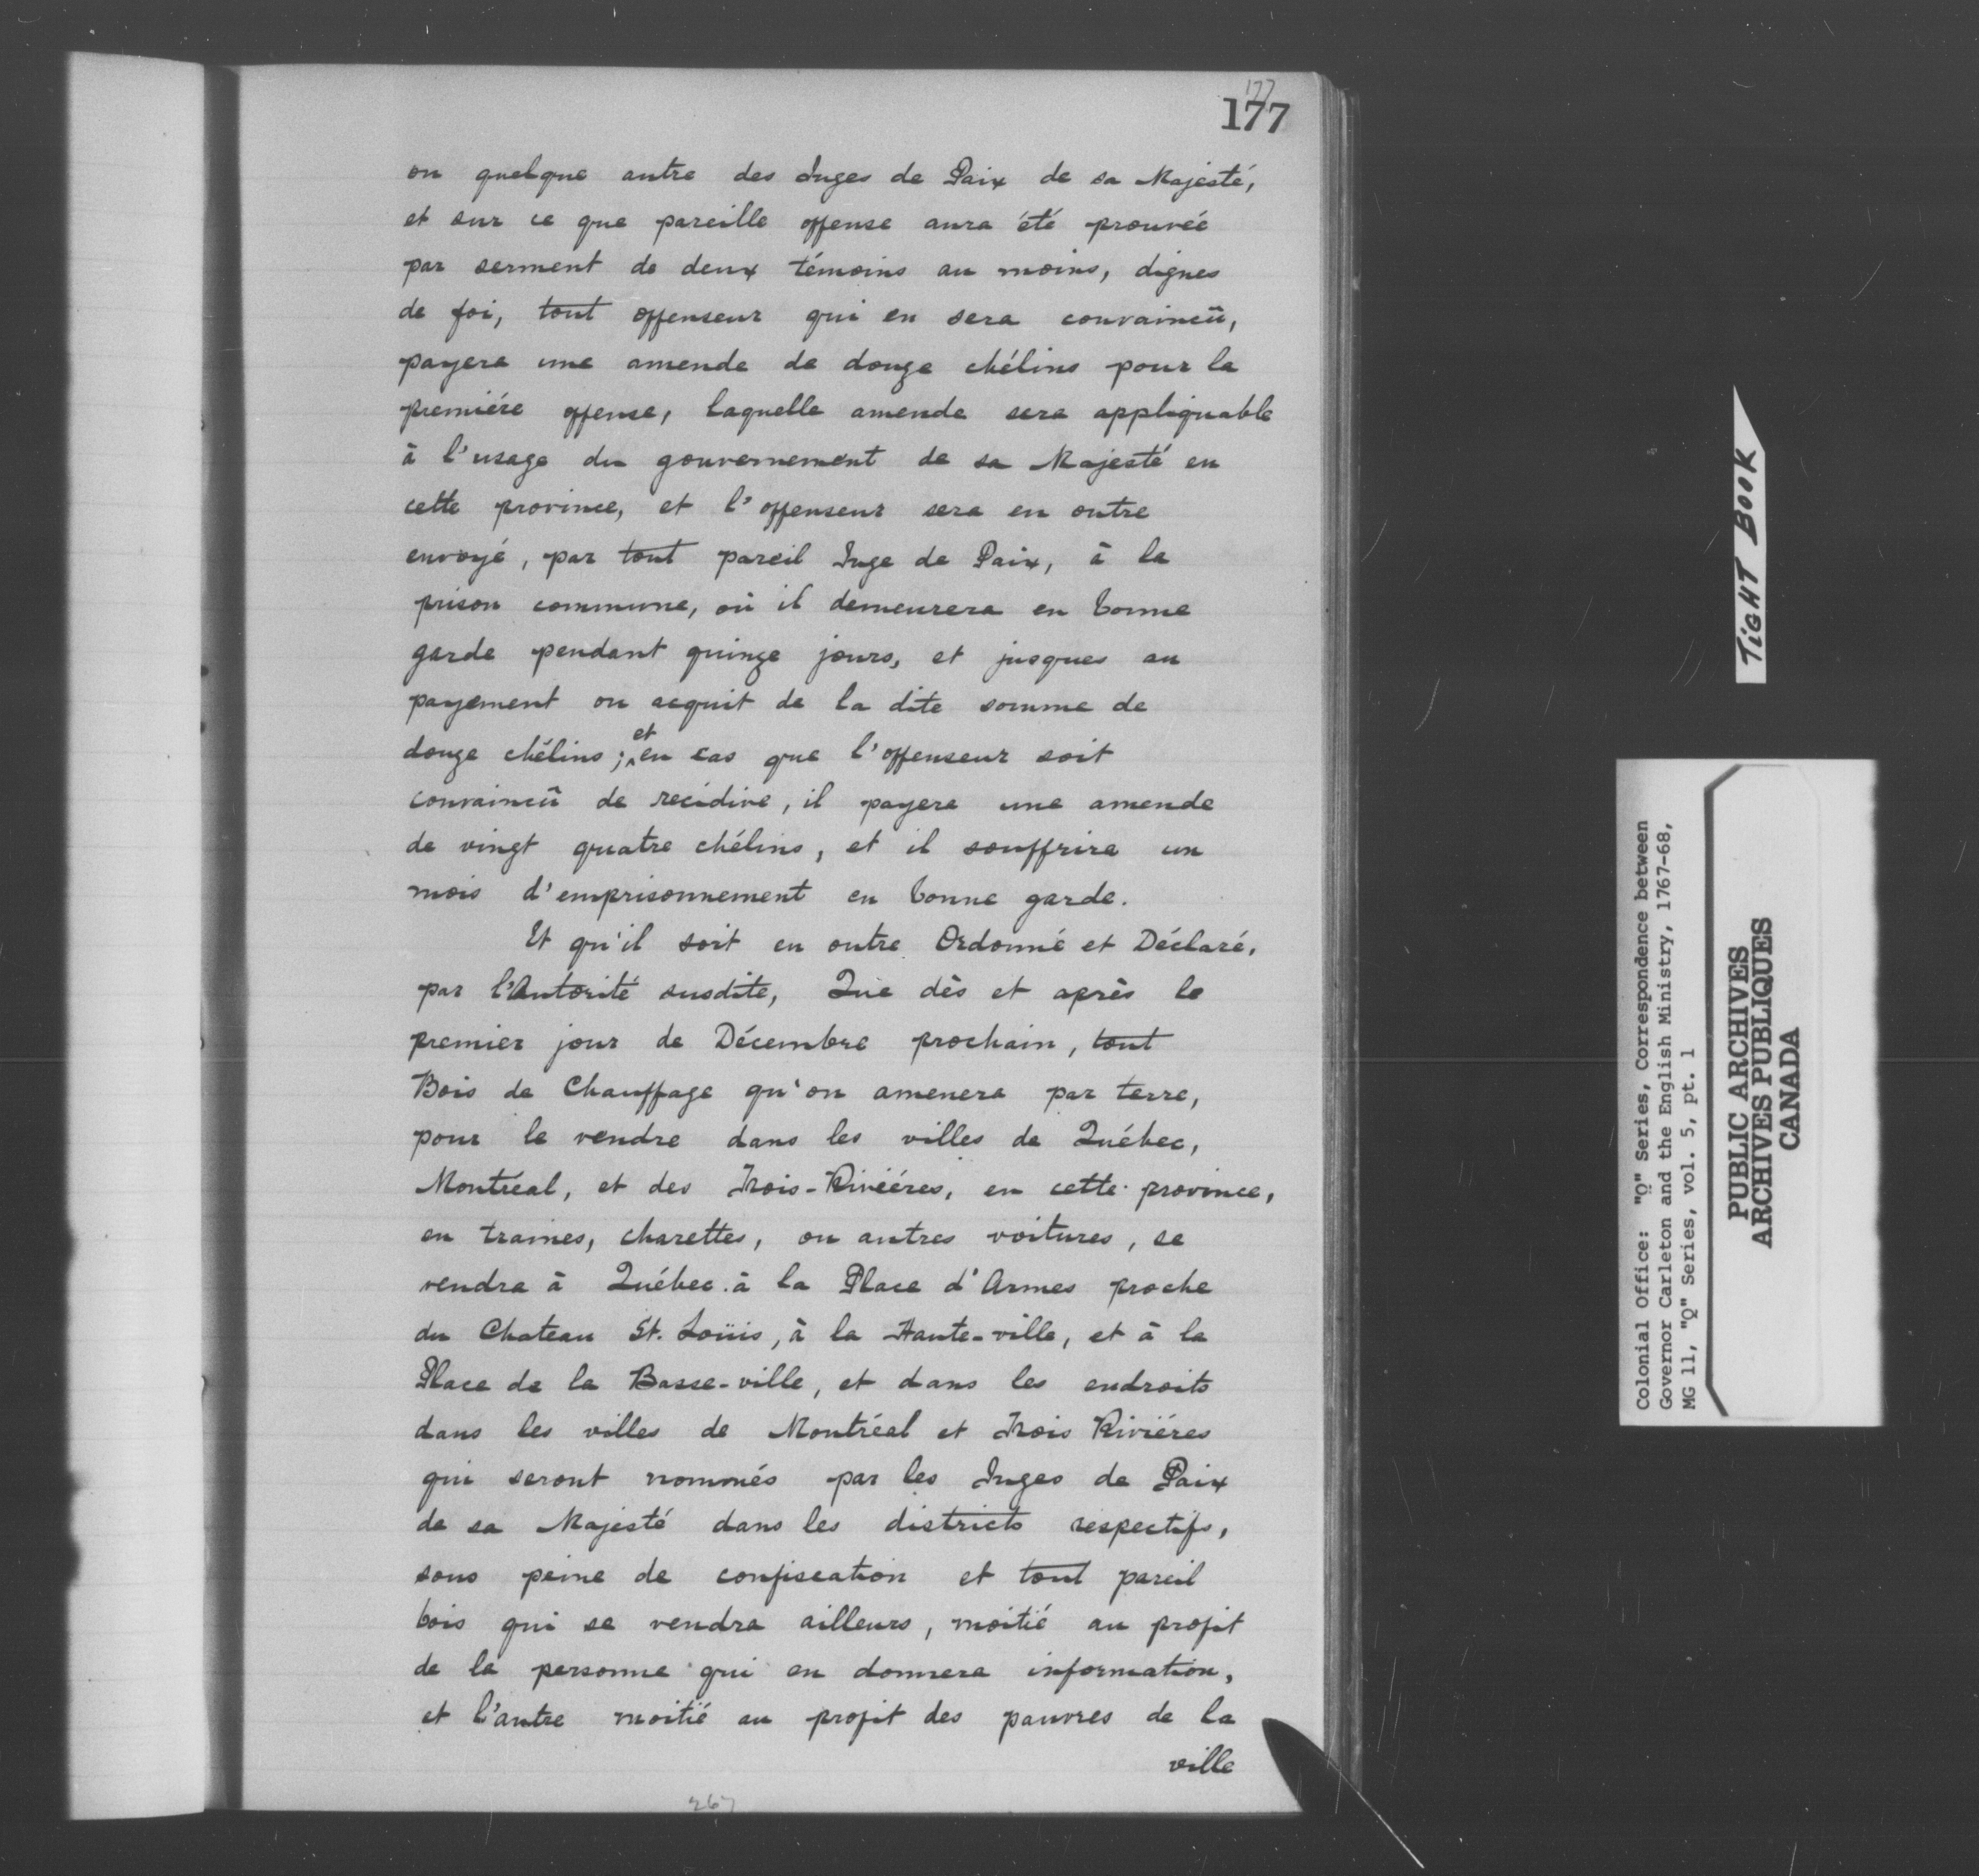 177
177
ou quelque autre des Juges de Paix de sa Majesté,
et sur ce que pareille offense aura été prouvée
par serment de deux témoins au moins, dignes
de foi, tout offenseur qui en sera convaincû,
payera une amende de douze chélins pour la
premiére offense, laquelle amende sera appliquable
à l'usage du gouvernement de sa Majesté en
cette province, et l'offenseur sera en outre
envoyé, par tout pareil Juge de Paix, à la
prison commune, où il demeurera en bonne
garde pendant quinze jours, et jusques au
payement ou acquit de la dite somme de
douze chélins; et en cas que l'offenseur soit
convaincû de recidive, il payera une amende
de vingt quatre chélins, et il souffrira un
mois d'emprisonnement en bonne garde.
Et qu'il soit en outre Ordonné et Déclaré,
par l'Autorité susdite, Que dès et après le
premier jour de Décembre prochain, tout
Bois de Chauffage qu'on amenera par terre,
pour le vendre dans les villes de Québec,
Montréal, et des Trois-Riviéres, en cette province,
en traines, charettes, ou autres voitures, se
vendra à Québec à la Place d'Armes proche
du Chateau St. Loüis, à la Haute-ville, et à la
Place de la Basse-ville, et dans les endroits
dans les villes de Montréal et Trois Riviéres
qui seront nommés par les Juges de Paix
de sa Majesté dans les districts respectifs,
sous peine de confiscation et tout pareil
bois qui se vendra ailleurs, moitié au profit
de la personne qui en donnera information,
et l'autre moitié au profit des pauvres de la
ville
267
TIGHT BOOK
Colonial Office: "Q" Series, Correspondence between
Governor Carleton and the English Ministry, 1767-68,
MG 11, "Q" Series, vol. 5, pt. 1
PUBLIC ARCHIVES
ARCHIVES PUBLIQUES
CANADA